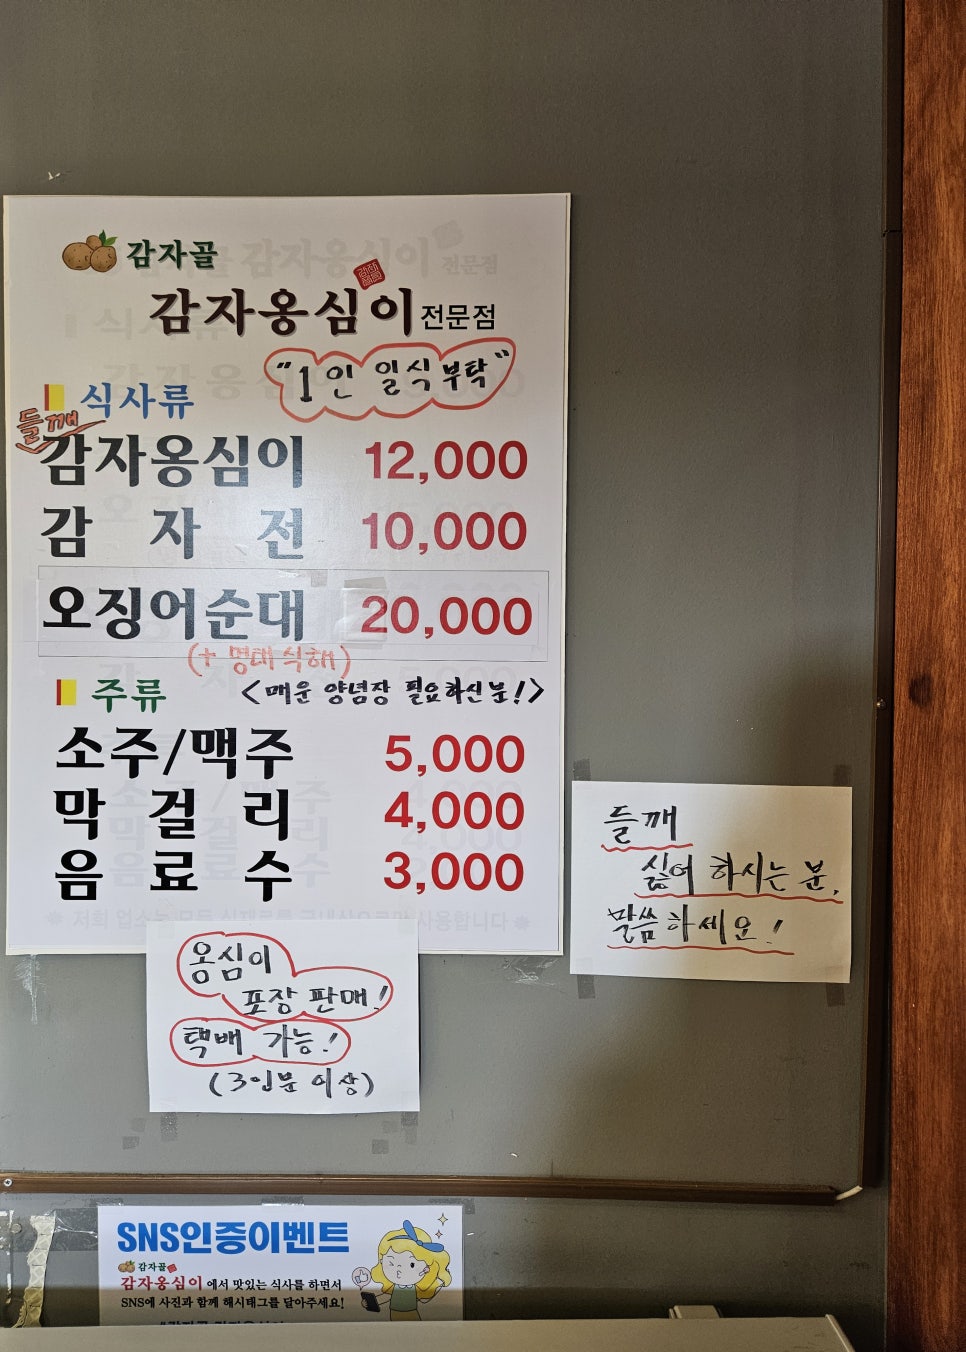 감자골
감자옹심이 전문점
"1인 일식 부탁"
식사류
들깨
감자옹심이 12,000
감자전 10,000
오징어순대 20,000
(+ 명태식해)
<매운 양념장 필요하신 분!>
주류
소주/맥주 5,000
막걸리 4,000
음료수 3,000
저희 업소는 모든 식재료를 국내산으로만 사용합니다
들깨
싫어 하시는 분,
말씀하세요!
옹심이
포장 판매!
택배 가능!
(3인분 이상)
SNS인증이벤트
감자골
감자옹심이에서 맛있는 식사를 하면서
SNS에 사진과 함께 해시태그를 달아주세요!